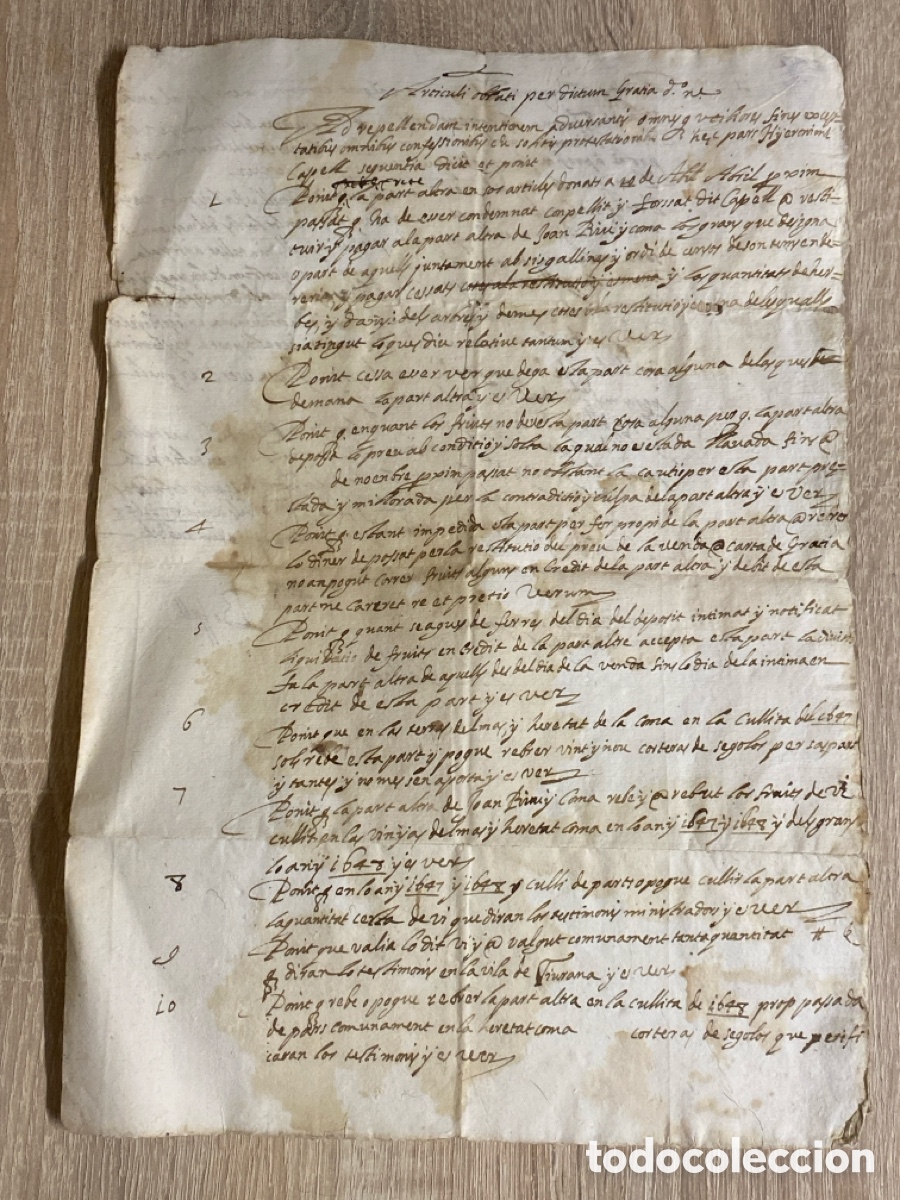 Articuli oblati per dictum Gratia d.º n.e
Ad repellendam intentionem adversantis omnis q
tatibus omnibus confessionibus protestationib. hec pars Hyeronim
Capell sequentia dicit et ponit
1 Ponit q la part altra en sos articles donats a 14 de Abril proxim
passat q ha de esser condemnat compellit y forssat dit Capell @ resti
tuir y pagar a la part altra de Joan Riu y coma los grans que designa
o part de aquells juntament ab sis gallines y ordi de
y pagar y las quantitats
bes, y danys del arbres y demes restitutio y esmena dels quals
sia tingut lo ques diu relative tantum y es ver
2 Ponit cessa esser ver que dega esta part cosa alguna de las ques
demana la part altra y es ver
3 Ponit q en quant los fruits no deu esta part cosa alguna per q la part altra
deposa lo preu ab conditio y solta la qual no estada llevada fins @
de noembre proxim passat no obstant la cautio per esta part pre
stada y millorada per la contradictio y culpa de la part altra y es ver
4 Ponit q estant impedida esta part per for propi de la part altra @ rebrer
lo diner depossat per la restitutio del preu de la venda @ carta de Gracia
no an pogut correr fruits alguns en credit de la part altra y debit de esta
part ne careret re et pretio verum
5 Ponit q quant se agues de fer res del dia del deposit intimat y notificat
liquidacio de fruits en credit de la part altre accepta esta part la
fa la part altra de aquells des del dia de la venda fins lo dia de la intima en
credit de esta part y es ver
6 Ponit que en las terras del mas y heretat de la Coma en la cullita del 1647
sols rebe esta part y pogue rebrer vint y nou corteras de segolos per sa part
y tantes y no mes sen aporta y es ver
7 Ponit q la part altra de Joan Riu y Coma rebe y @ rebut los fruits de vi
cullit en las vinyas del mas y heretat coma en lo any 1647 y 1648 y dels grans
lo any 1648 y es ver
8 Ponit q en lo any 1647 y 1648 y culli de part o pogue cullir la part altra
la quantitat certa de vi que diran los testimonis ministradors y es ver
9 Ponit que valia lo dit vi y @ valgut comunament tanta quantitat #
q diran los testimonis en la vila de Tiurana y es ver
10 Ponit q rebe o pogue rebrer la part altra en la cullita de 1648 prop passada
de parts comunament en la heretat coma corteras de segolos que perifi
caran los testimonis y es ver
todocoleccion